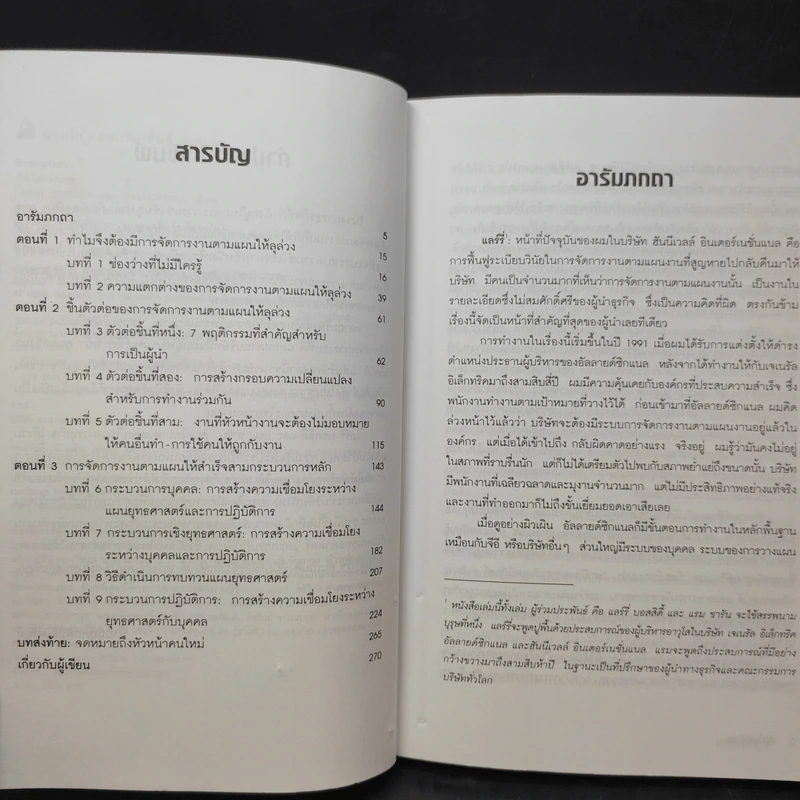 สารบัญ
อารัมภกถา 5
ตอนที่ 1 ทำไมจึงต้องมีการจัดการงานตามแผนให้ลุล่วง 15
บทที่ 1 ช่องว่างที่ไม่มีใครรู้ 16
บทที่ 2 ความแตกต่างของการจัดการงานตามแผนให้ลุล่วง 39
ตอนที่ 2 ชิ้นตัวต่อของการจัดการงานตามแผนให้ลุล่วง 61
บทที่ 3 ตัวต่อชิ้นที่หนึ่ง: 7 พฤติกรรมที่สำคัญสำหรับ
การเป็นผู้นำ 62
บทที่ 4 ตัวต่อชิ้นที่สอง: การสร้างกรอบความเปลี่ยนแปลง
สำหรับการทำงานร่วมกัน 90
บทที่ 5 ตัวต่อชิ้นที่สาม: งานที่หัวหน้างานจะต้องไม่มอบหมาย
ให้คนอื่นทำ-การใช้คนให้ถูกกับงาน 115
ตอนที่ 3 การจัดการงานตามแผนให้สำเร็จสามกระบวนการหลัก 143
บทที่ 6 กระบวนการบุคคล: การสร้างความเชื่อมโยงระหว่าง
แผนยุทธศาสตร์และการปฏิบัติการ 144
บทที่ 7 กระบวนการเชิงยุทธศาสตร์: การสร้างความเชื่อมโยง
ระหว่างบุคคลและการปฏิบัติการ 182
บทที่ 8 วิธีดำเนินการทบทวนแผนยุทธศาสตร์ 207
บทที่ 9 กระบวนการปฏิบัติการ: การสร้างความเชื่อมโยงระหว่าง
ยุทธศาสตร์กับบุคคล 224
บทส่งท้าย: จดหมายถึงหัวหน้าคนใหม่ 265
เกี่ยวกับผู้เขียน 270
อารัมภกถา
แลร์รี่¹: หน้าที่ปัจจุบันของผมในบริษัท ฮันนีเวลล์ อินเตอร์เนชั่นแนล คือ
การฟื้นฟูระเบียบวินัยในการจัดการงานตามแผนงานที่สูญหายไปกลับคืนมาให้
บริษัท มีคนเป็นจำนวนมากที่เห็นว่าการจัดการงานตามแผนงานนั้น เป็นงานใน
รายละเอียดซึ่งไม่สมศักดิ์ศรีของผู้นำธุรกิจ ซึ่งเป็นความคิดที่ผิด ตรงกันข้าม
เรื่องนี้จัดเป็นหน้าที่สำคัญที่สุดของผู้นำเลยทีเดียว
การทำงานในเรื่องนี้เริ่มขึ้นในปี 1991 เมื่อผมได้รับการแต่งตั้งให้ดำรง
ตำแหน่งประธานผู้บริหารของอัลลายด์ซิกแนล หลังจากได้ทำงานให้กับเจเนรัล
อิเล็กทริคมาถึงสามสิบสี่ปี ผมมีความคุ้นเคยกับองค์กรที่ประสบความสำเร็จ ซึ่ง
พนักงานทำงานตามเป้าหมายที่วางไว้ได้ ก่อนเข้ามาที่อัลลายด์ซิกแนล ผมคิด
ล่วงหน้าไว้แล้วว่า บริษัทจะต้องมีระบบการจัดการงานตามแผนงานอยู่แล้วใน
องค์กร แต่เมื่อได้เข้าไปถึง กลับผิดคาดอย่างแรง จริงอยู่ ผมรู้ว่ามันคงไม่อยู่
ในสภาพที่ราบรื่นนัก แต่ก็ไม่ได้เตรียมตัวไปพบกับสภาพย่ำแย่ถึงขนาดนั้น บริษัท
มีพนักงานที่เฉลียวฉลาดและมุงานจำนวนมาก แต่ไม่มีประสิทธิภาพอย่างแท้จริง
และงานที่ทำออกมาก็ไม่ถึงขั้นเยี่ยมยอดเอาเสียเลย
เมื่อดูอย่างผิวเผิน อัลลายด์ซิกแนลก็มีขั้นตอนการทำงานในหลักพื้นฐาน
เหมือนกับจีอี หรือบริษัทอื่นๆ ส่วนใหญ่มีระบบของบุคคล ระบบของการวางแผน
¹ หนังสือเล่มนี้ทั้งเล่ม ผู้ร่วมประพันธ์ คือ แลร์รี่ บอสสิดี้ และ แรม ชาราน จะใช้สรรพนาม
บุรุษที่หนึ่ง แลร์รี่จะพูดปูพื้นด้วยประสบการณ์ของผู้บริหารอาวุโสในบริษัท เจเนรัล อิเล็กทริค
อัลลายด์ซิกแนล และฮันนีเวลล์ อินเตอร์เนชั่นแนล แรมจะพูดถึงประสบการณ์ที่มีอย่าง
กว้างขวางมาถึงสามสิบห้าปี ในฐานะเป็นที่ปรึกษาของผู้นำทางธุรกิจและคณะกรรมการ
บริษัททั่วโลก